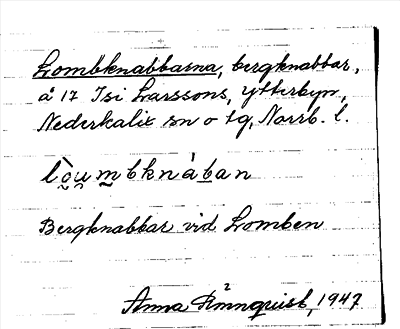 Lombknabbarna, bergknabbar,
å 17 Isi Larssons, Ytterbyn,
Nederkalix sn o tg, Norrb. l.
lòumbknàban
Bergknabbar vid Lomben
Anna Rönnquist, 1947